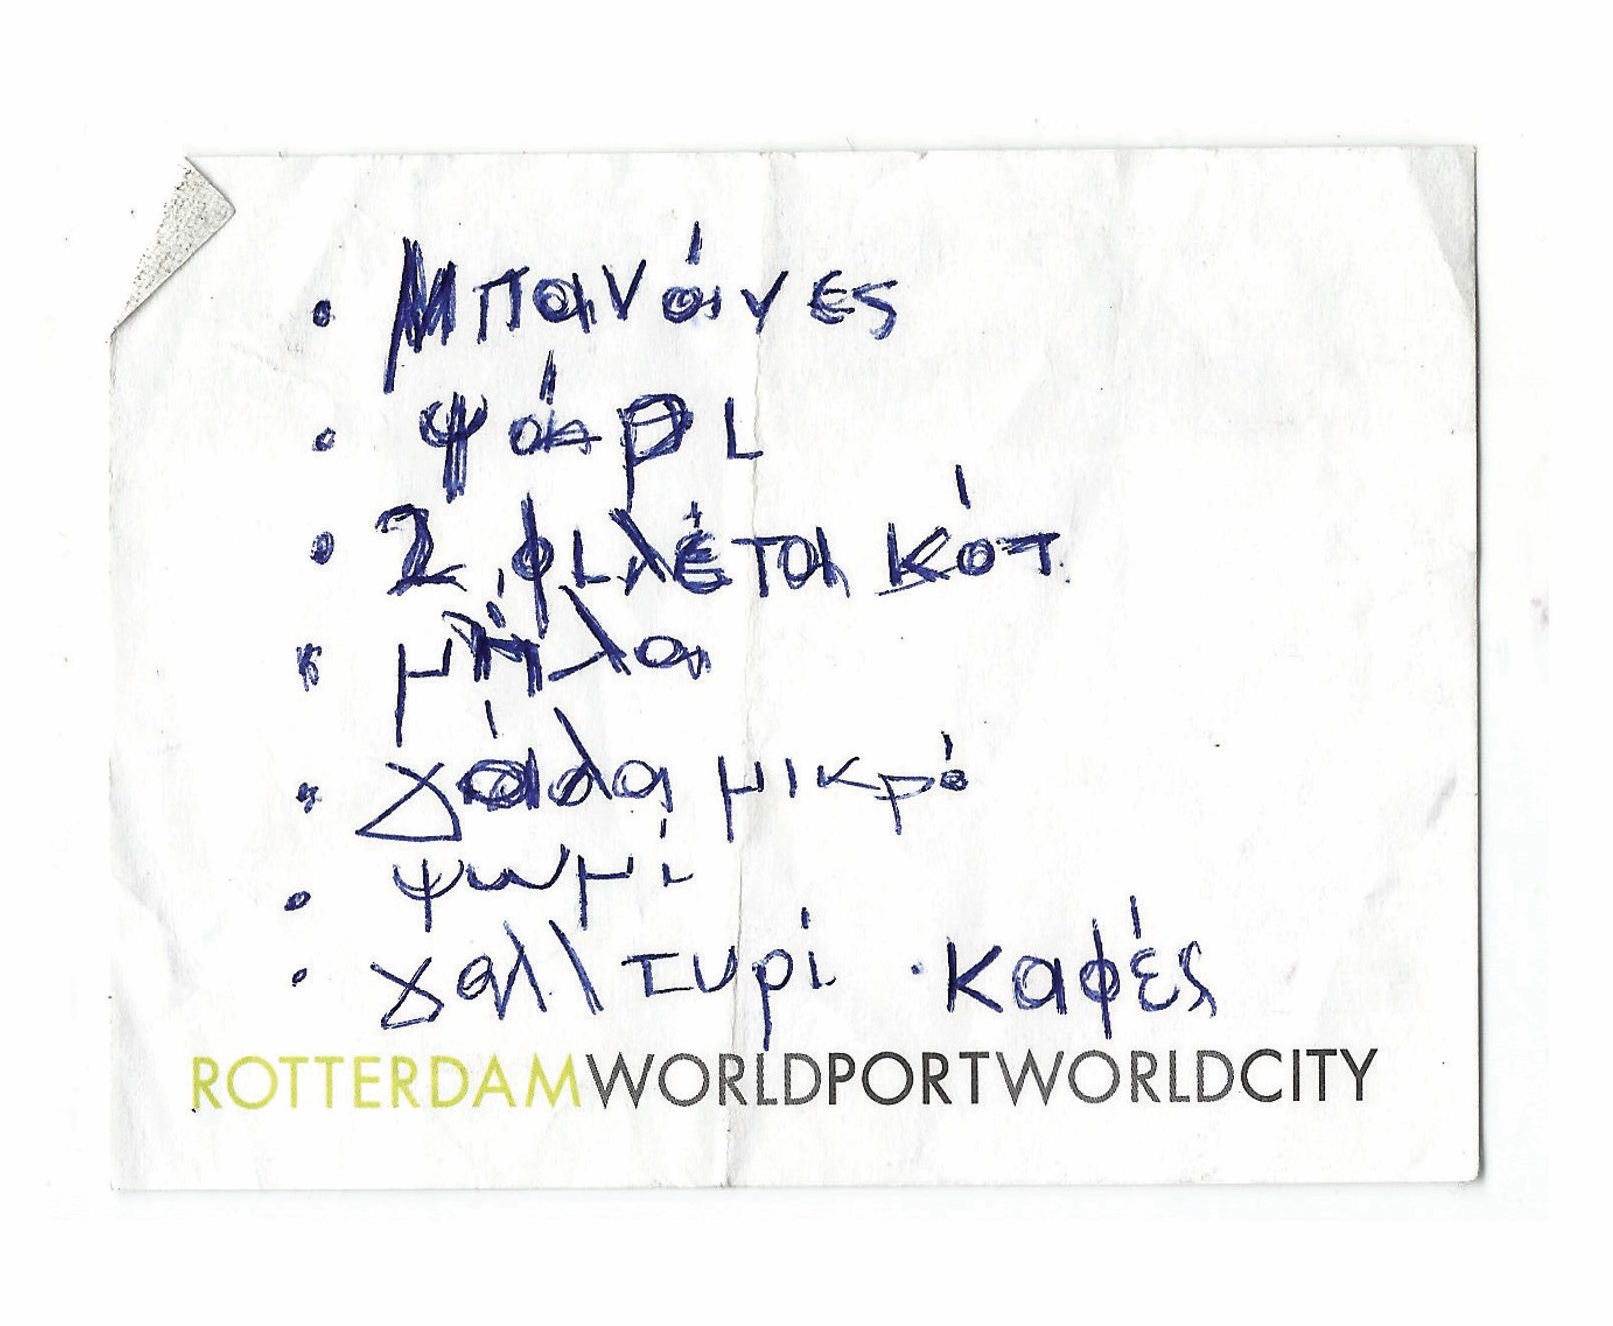 • Μπανάνες
• ψάρι
• 2 φιλέτα κότ
• μήλα
• γάλα μικρό
• ψωμί
• γαλλ τυρί • καφές
ROTTERDAMWORLDPORTWORLDCITY